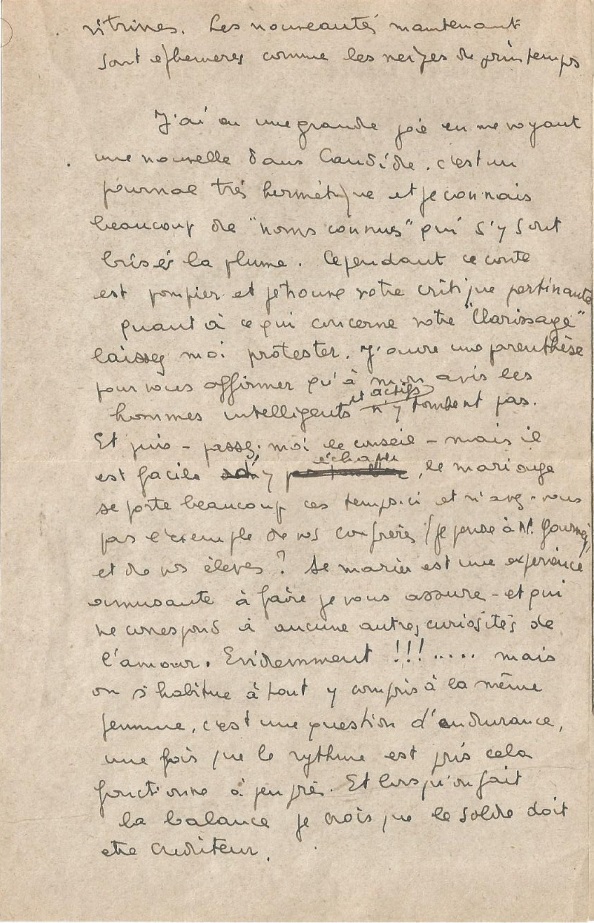 vitrines. Les nouveautés maintenant
sont éphemeres comme les neiges de printemps
J'ai eu une grande joie en me voyant
une nouvelle dans Candide. c'est un
journal très hermétique et je connais
beaucoup de "noms connus" qui s'y sont
brisés la plume. Cependant ce conte
est pompier et je trouve votre critique pertinante
quant à ce qui concerne votre "Clarissage"
laissez moi protester. J'ouvre une parenthèse
pour vous affirmer qu'à mon avis les
hommes intelligents et actifs n'y tombent pas.
Et puis - passez moi le conseil - mais il
est facile d'y échapper, le mariage
se porte beaucoup ces temps-ci et n'avez-vous
pas l'exemple de vos confrères (je pense à Mr.
et de vos élèves ? Se marier est une expérience
amusante à faire je vous assure - et qui
ne correspond à aucune autres curiosités de
l'amour. Evidemment !!! ..... mais
on s'habitue à tout y compris à la même
femme, c'est une question d'endurance,
une fois que le rythme est pris cela
fonctionne à peu près. Et lorsqu'on fait
la balance je crois que le solde doit
etre crediteur.